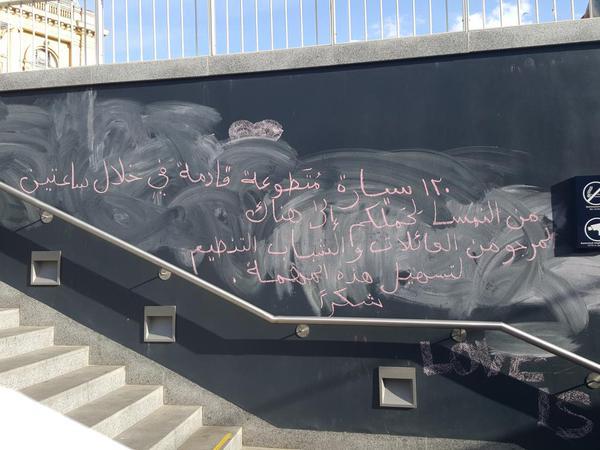 ١٢٠ سيارة مُتطوعة قادمة في خلال ساعتين
من النمسا لحملكم إلى هناك
نرجو من العائلات والشباب التنظيم
لتسهيل هذه المهمة .
شكراً
LOVE
IS